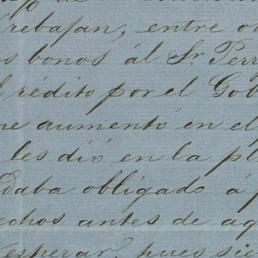 rebajan, entre o
os bonos ál Sr Perr
rédito por el Gob
ne aumentó en el
les dió en la pl
daba obligado á p
echos antes de ag
esperar, pues sie